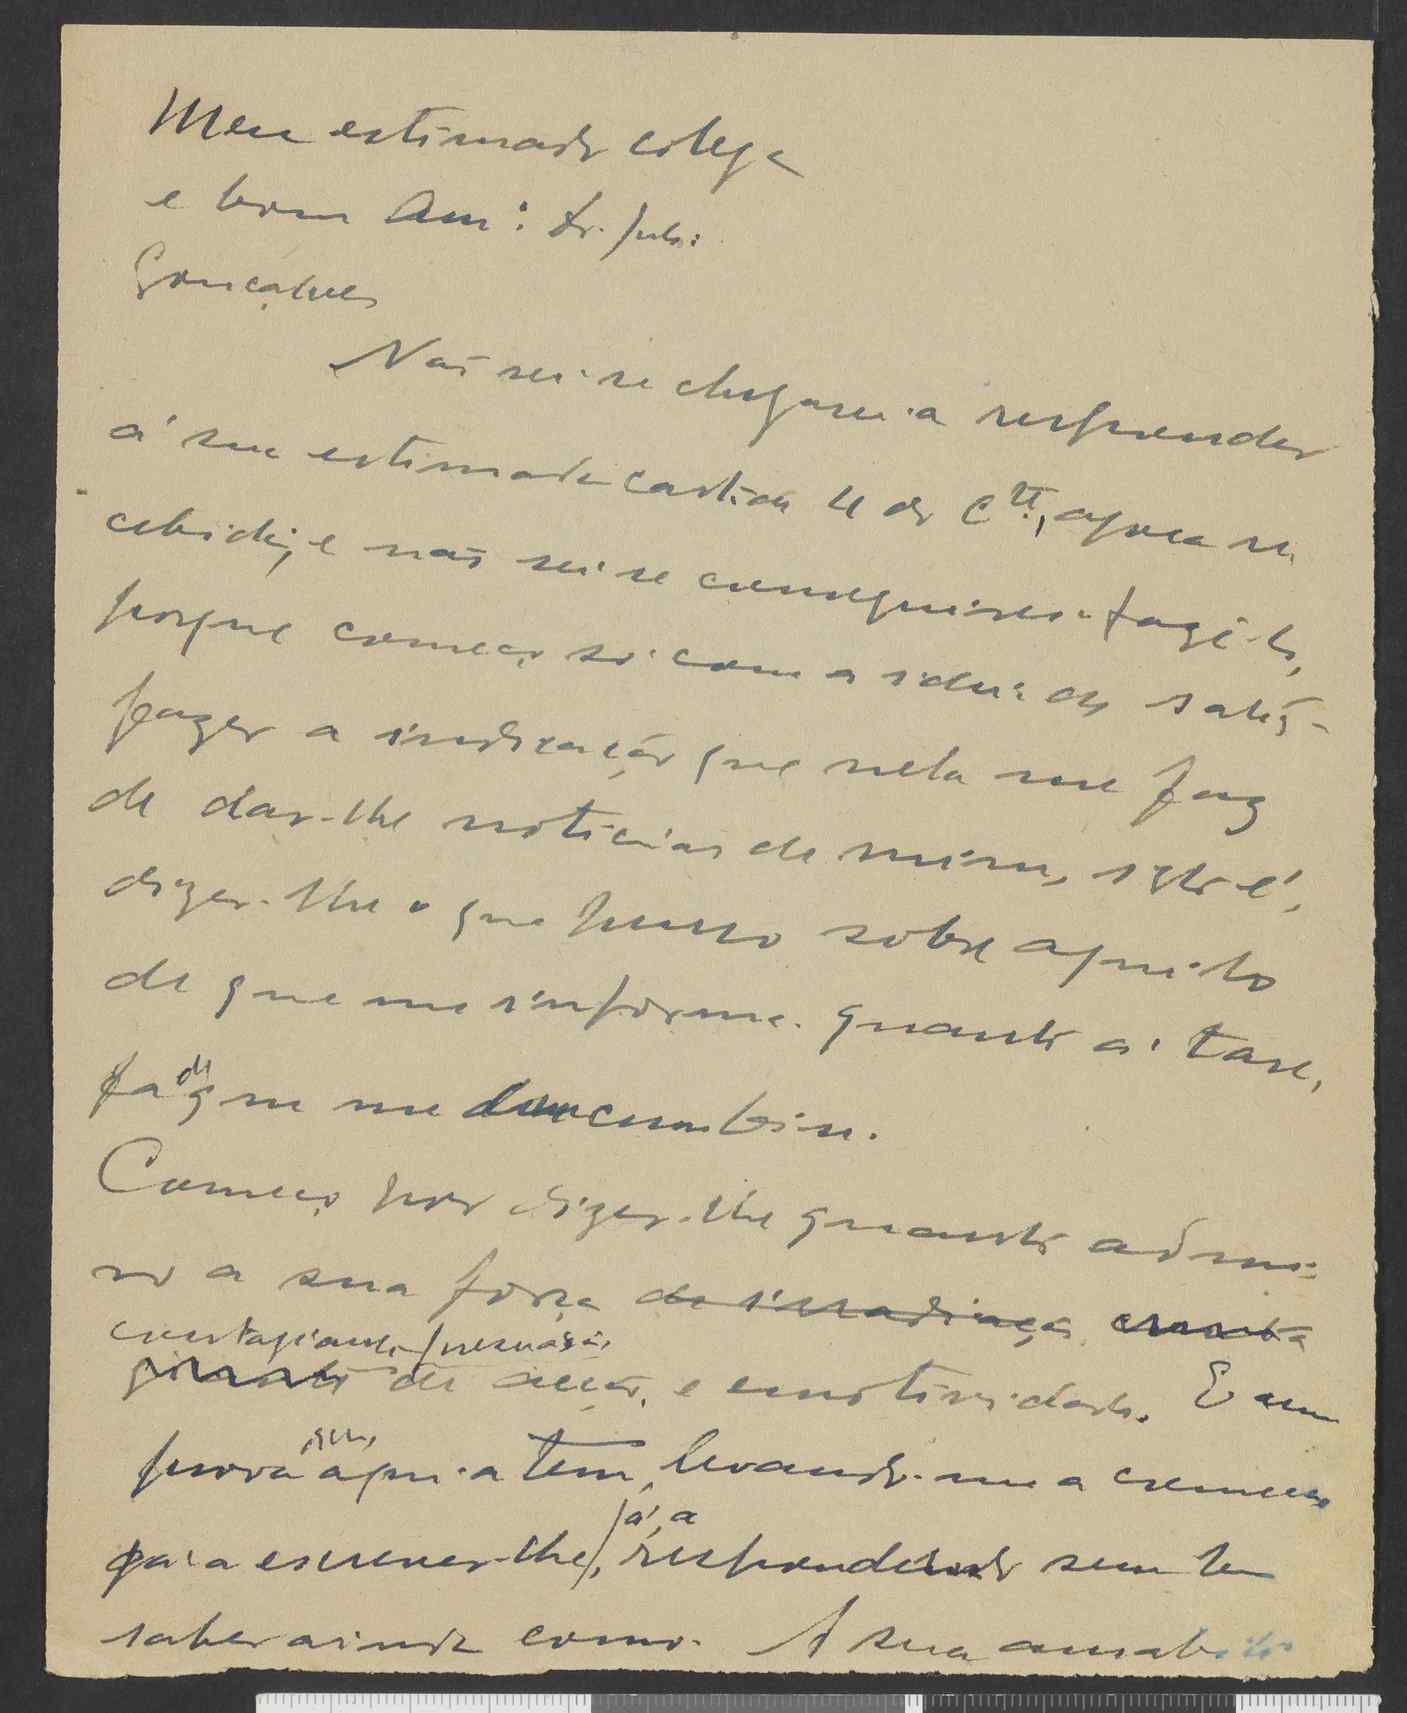 Meu estimado colega
e bom Am.º Dr. Julio
Gonçalves
Não sei se chegarei a responder
á sua estimada carta de 4 do c.te, agora re
cebida, e não sei se conseguirei fazê-lo,
porque começo só com a ideia de satis-
fazer a indicação que nela me faz
de dar-lhe noticias de mim, isto é,
dizer-lhe o que penso sobre aquilo
de que me informa quanto á tare,
fa de que me incumbiu.
Começo por dizer-lhe quanto admi
ro a sua força de irradiação
contagiante, persuasão,
de acção, e emotividade. E uma
prova, sua,
aqui a tem, levando-me a começar
já, a
para escrever-lhe, respondendo sem
saber ainda como. A sua amabili